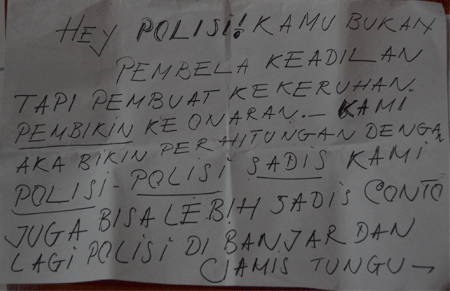 HEY POLISI! KAMU BUKAN
PEMBELA KEADILAN
TAPI PEMBUAT KEKERUHAN.
PEMBIKIN KEONARAN.– KAMI
AKA BIKIN PERHITUNGAN DENGA
POLISI-POLISI SADIS KAMI
JUGA BISA LEBIH SADIS CONTO
LAGI POLISI DI BANJAR DAN
CJAMIS TUNGU –